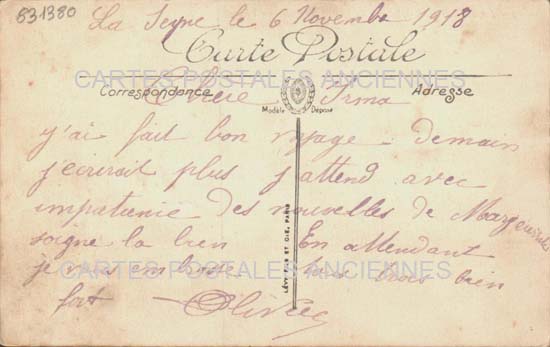 831380
La Seyne le 6 Novembre 1918
Carte Postale
CARTES POSTALES ANCIENNES
Correspondance
Adresse
Chère Irma
Modèle Déposé
j'ai fait bon voyage demain
j'ecrirait plus j'attend avec
impatience des nouvelles de
soigne la bien En attendant
je vous embrasse tous trois bien
CARTES POSTALES ANCIENNES
fort
LÉVY FILS ET CIE, PARIS